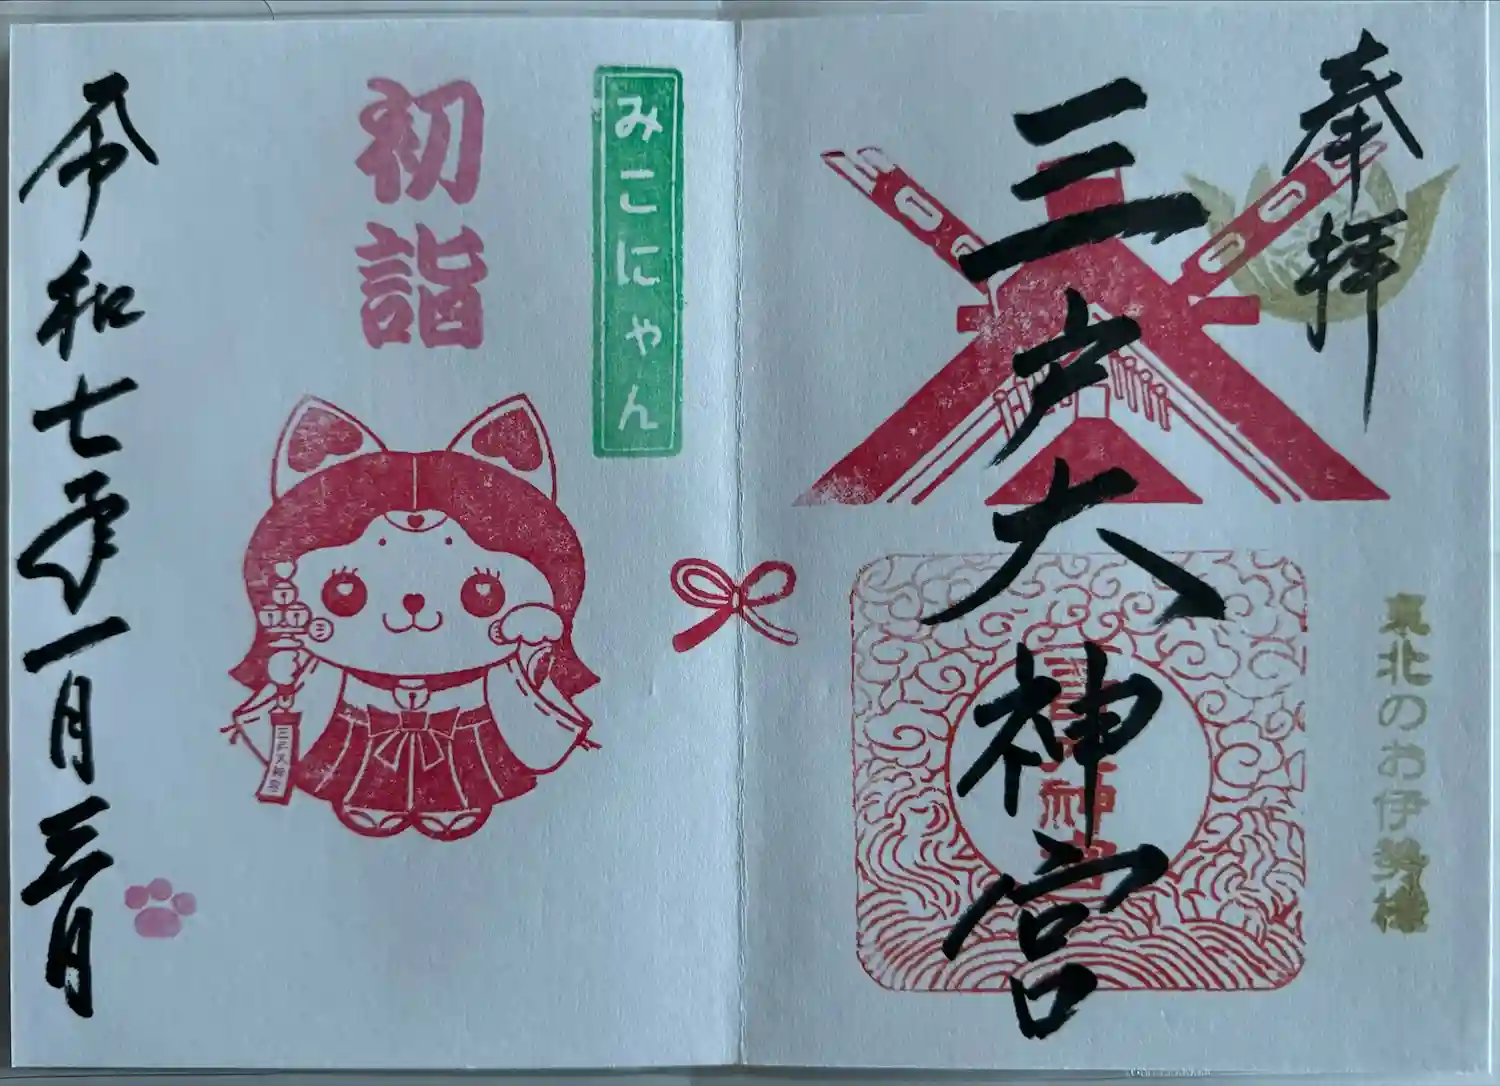 奉拝
東北のお伊勢様
三戸大神宮
みこにゃん
初詣
三戸大神宮
令和七年一月三日